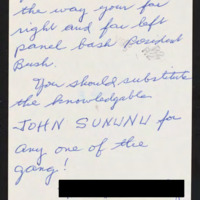 the way your far
right and far left
panel bash President
Bush.
You should substitute
the knowledgable
JOHN SUNUNU for
any one of the
gang!